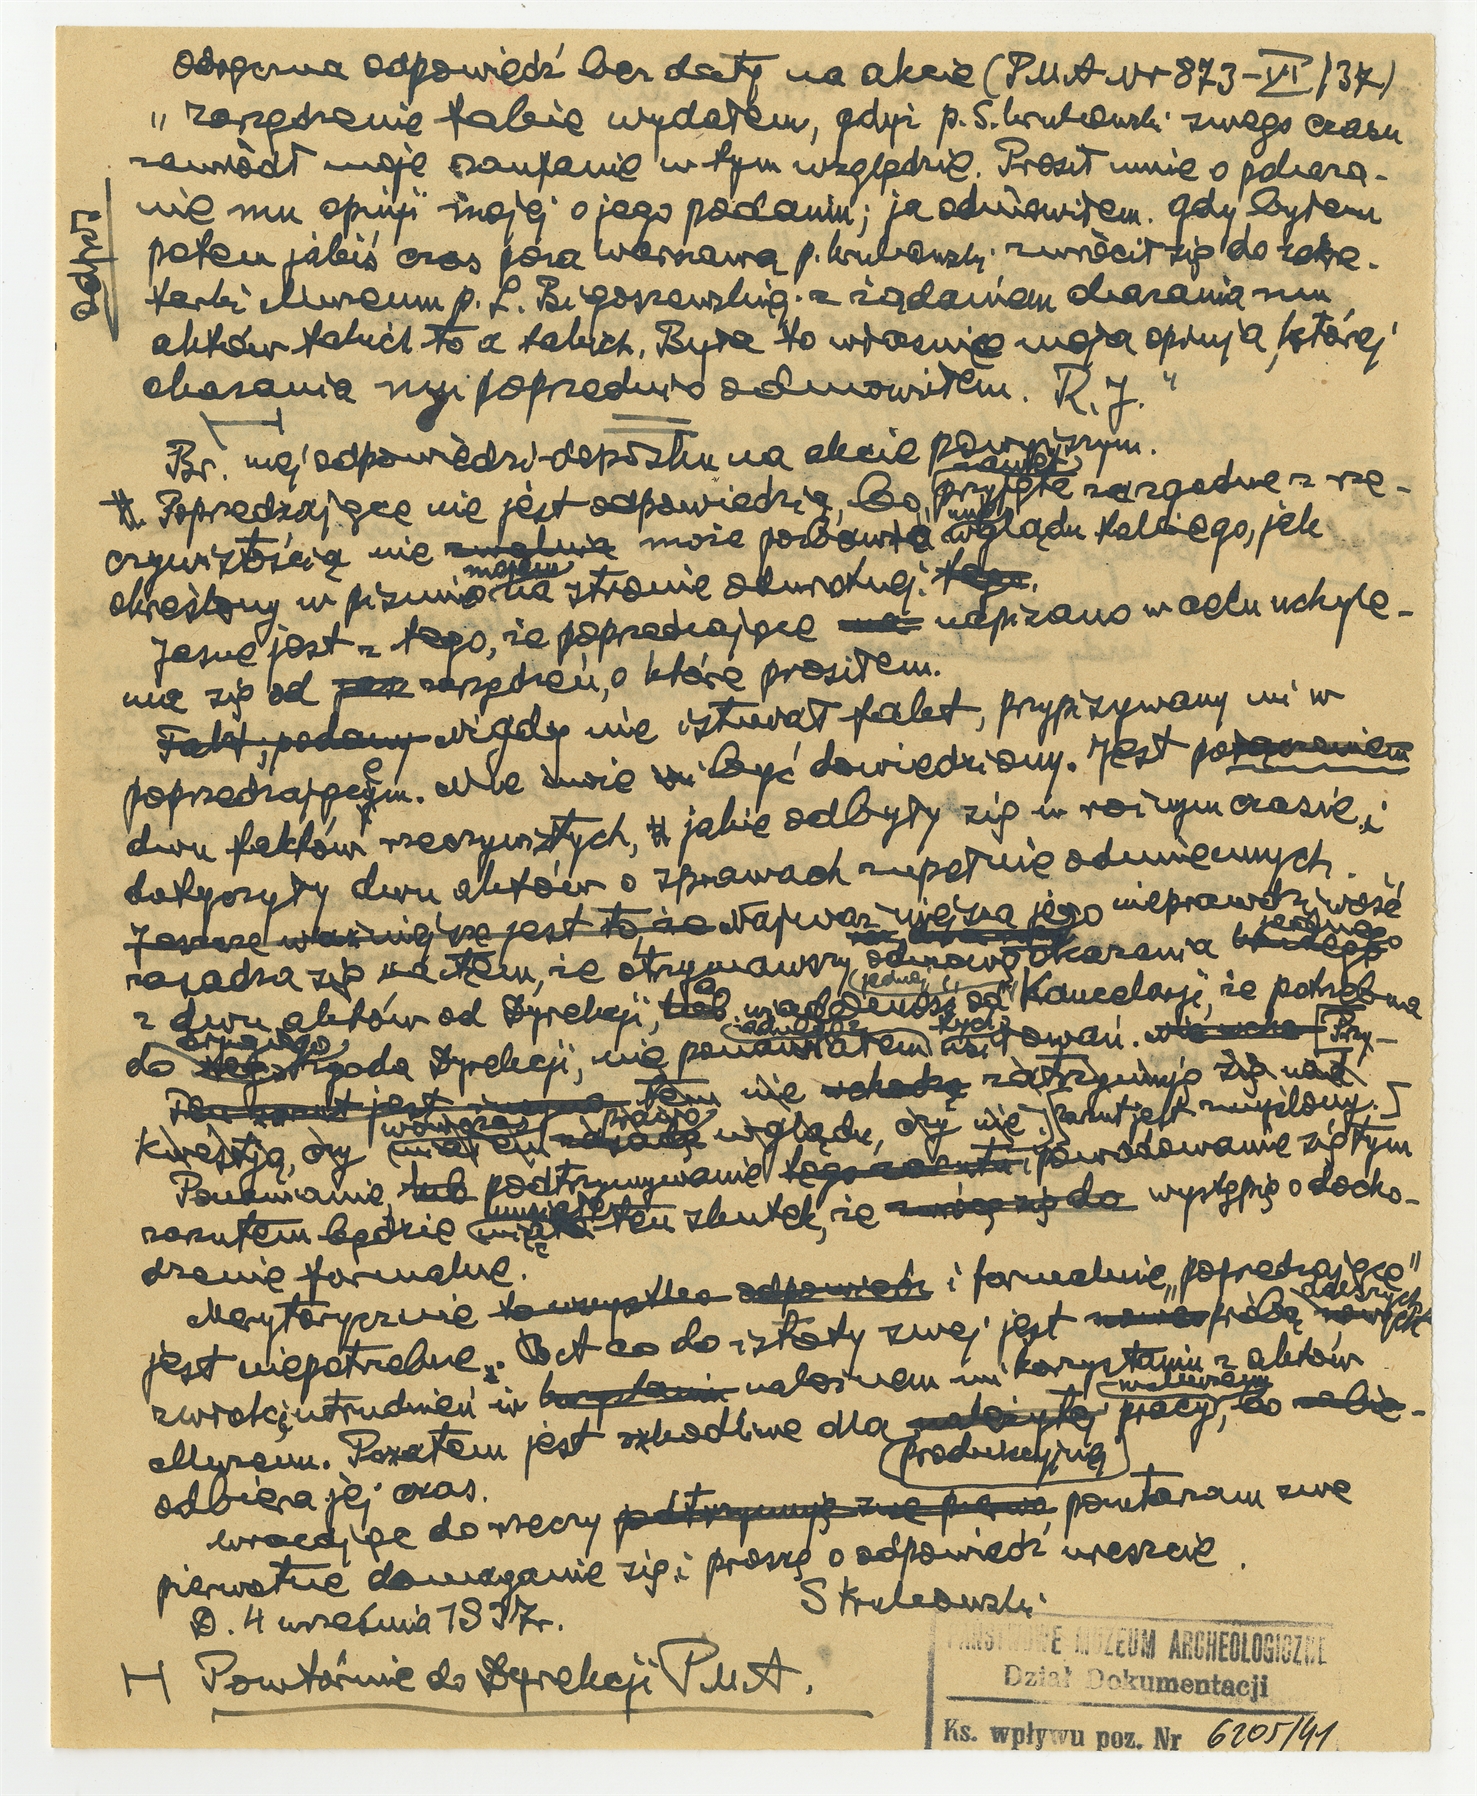 odręczna odpowiedź bez daty na akcie (PMA Nr 873-VI/37)
„Zarządzenie takie wydałem, gdyż p. S. Krukowski swego czasu
zawiódł moje zaufanie w tym względzie. Prosił mnie o pokaza-
nie mu opinji mojej o jego podaniu; ja odmówiłem. Gdy byłem
potem jakiś czas poza Warszawą p. Krukowski zwrócił się do sekre-
tarki Muzeum p. L. Bigoszewskiej z żądaniem okazania mu
aktów takich to a takich. Była to właśnie moja opinja, której
okazania mu poprzednio odmówiłem. R. J."
odpis
Br. mej odpowiedzi-dopisku na akcie powyższym.
Poprzedzające nie jest odpowiedzią, bo, nawet przyjęte za zgodne z rze-
czywistością nie może pozbawić mnie wglądu takiego, jak
określony w piśmie mojem na stronie odwrotnej.
Jasne jest z tego, że poprzedzające napisano w celu uchyle-
nia się od zarządzeń, o które prosiłem.
Fakt, podany Nigdy nie istniał fakt, przypisywany mi w
poprzedzającem. Nie może być dowiedziony. Jest połączeniem
dwu faktów rzeczywistych, jakie odbyły się w różnym czasie i
dotyczyły dwu aktów o sprawach zupełnie odmiennych.
Jeszcze ważniejsze jest to, że Najważniejsza jego nieprawdziwość
zasadza się na tem, że otrzymawszy odmowę okazania jednego
z dwu aktów od Dyrekcji, a wiadomość od Kancelarji, że potrzebna
do drugiego zgoda Dyrekcji, nie ponawiałem usiłowań. [Przy-
tem nie zatrzymuję się nad
kwestją, czy miałem wówczas prawo wglądu, czy nie.] Zarzut jest zmyślony.
Ponawianie, podtrzymywanie i powodowanie się tym
zarzutem będzie miało ten skutek, że wystąpię o docho-
dzenie formalne.
Merytorycznie i formalnie „poprzedzające"
jest niepotrzebne. Bo co do istoty swej jest próbą dalszych
utrudnień w należnem mi korzystaniu z aktów
Muzeum. Pozatem jest szkodliwe dla pracy, bo
produkcyjnej
odbiera jej czas.
Wracając do rzeczy powtarzam swe
pierwotne domaganie się i proszę o odpowiedź wreszcie.
S Krukowski
D. 4 września 1937 r.
Powtórnie do Dyrekcji PMA.
PAŃSTWOWE MUZEUM ARCHEOLOGICZNE
Dział Dokumentacji
Ks. wpływu poz. Nr 6205/41